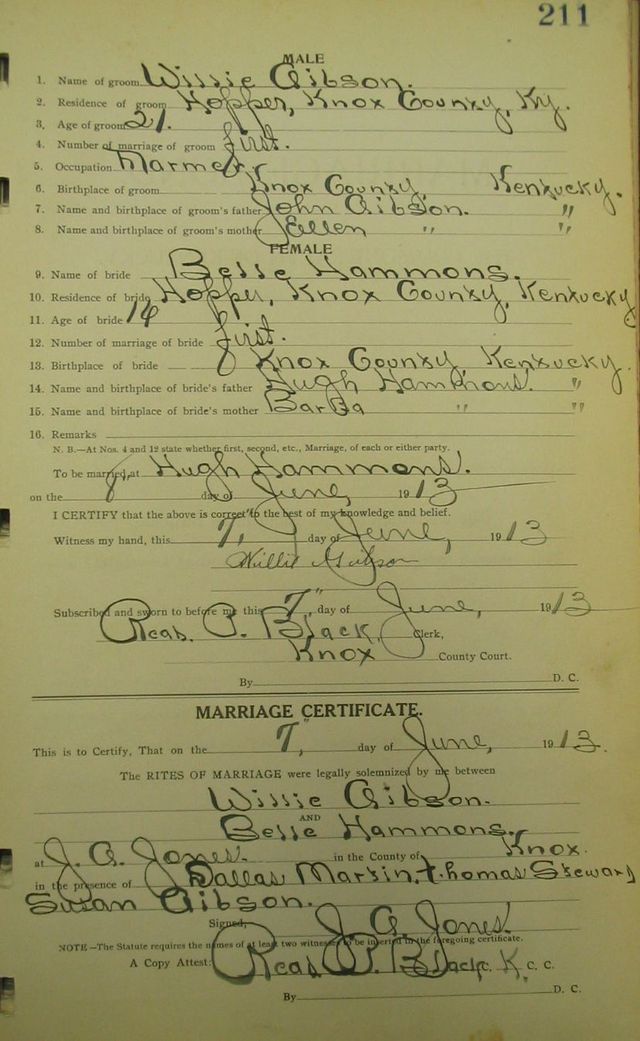 211
MALE
1. Name of groom Willie Gibson.
2. Residence of groom Hopper, Knox County, Ky.
3. Age of groom 21.
4. Number of marriage of groom first.
5. Occupation Farmer
6. Birthplace of groom Knox County, Kentucky.
7. Name and birthplace of groom's father John Gibson. "
8. Name and birthplace of groom's mother Ellen " "
FEMALE
9. Name of bride Belle Hammons.
10. Residence of bride Hopper, Knox County, Kentucky
11. Age of bride
12. Number of marriage of bride first.
13. Birthplace of bride Knox County, Kentucky.
14. Name and birthplace of bride's father Hugh Hammons. "
15. Name and birthplace of bride's mother " "
16. Remarks
N. B.—At Nos. 4 and 12 state whether first, second, etc., Marriage, of each or either party.
To be married, at Hugh Hammons.
on the 8, day of June, 1913
I CERTIFY that the above is correct to the best of my knowledge and belief.
Witness my hand, this 7, day of June, 1913
Willie Gibson
Subscribed and sworn to before me this 7", day of June, 1913
Black, Clerk,
Knox County Court.
By D. C.
MARRIAGE CERTIFICATE.
This is to Certify, That on the 7," day of June, 1913.
The RITES OF MARRIAGE were legally solemnized by me between
Willie Gibson.
AND
Belle Hammons.
at J. G. Jones. in the County of Knox.
in the presence of Dallas Martin, Thomas Steward
Susan Gibson.
Signed, J. G. Jones.
NOTE—The Statute requires the names of at least two witnesses to be inserted in the foregoing certificate.
A Copy Attest: Black C. K. C. C.
By D. C.